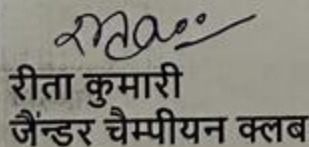 रीता कुमारी
जैन्डर चैम्पीयन क्लब